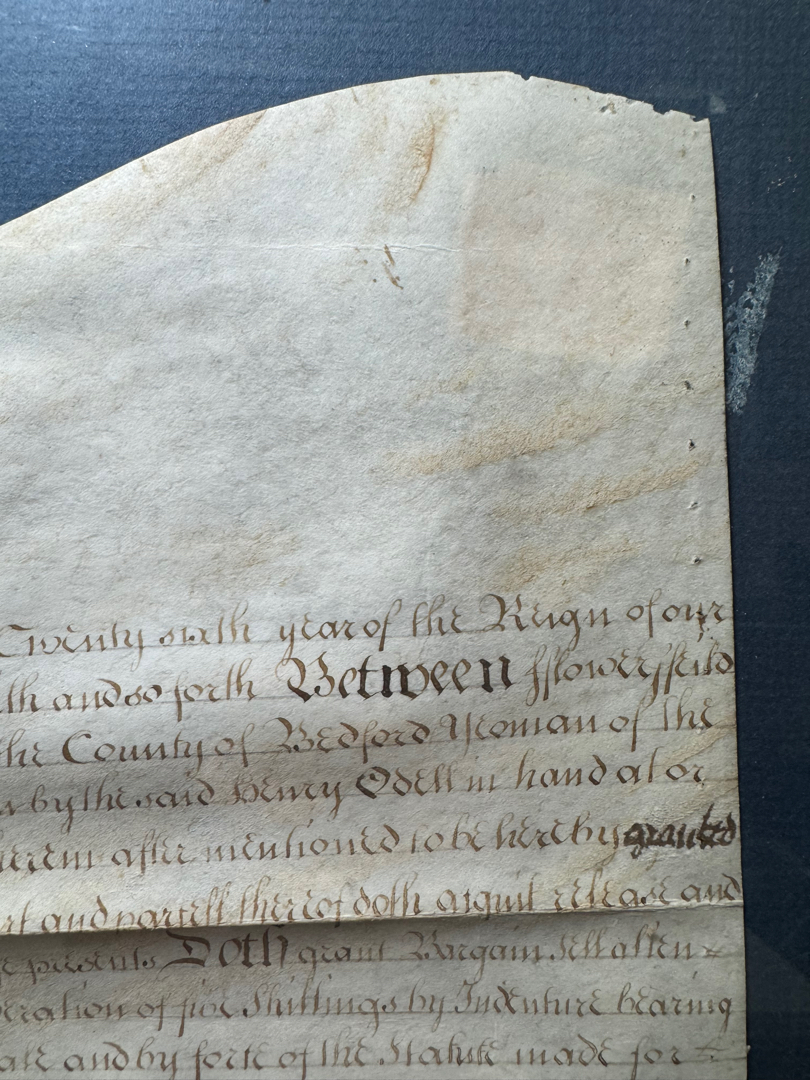 Twenty sixth year of the Reign of our
th and so forth Between
the County of Bedford Yeoman of the
by the said Henry Odell in hand at or
herein after mentioned to be hereby granted
and parcell thereof doth acquit release and
presents Doth grant Bargain sell alien
eration of five Shillings by Indenture bearing
ate and by force of the Statute made for